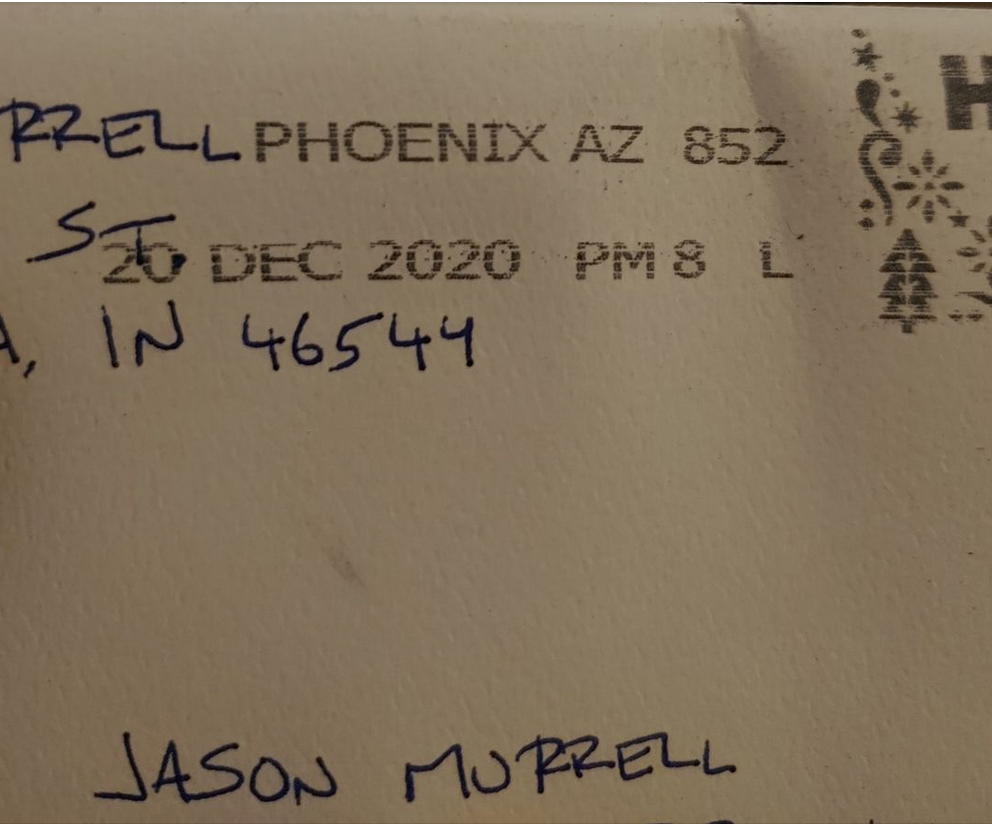 RRELL PHOENIX AZ 852 H
ST. 20 DEC 2020 PM 8 L
A, IN 46544
JASON MURRELL